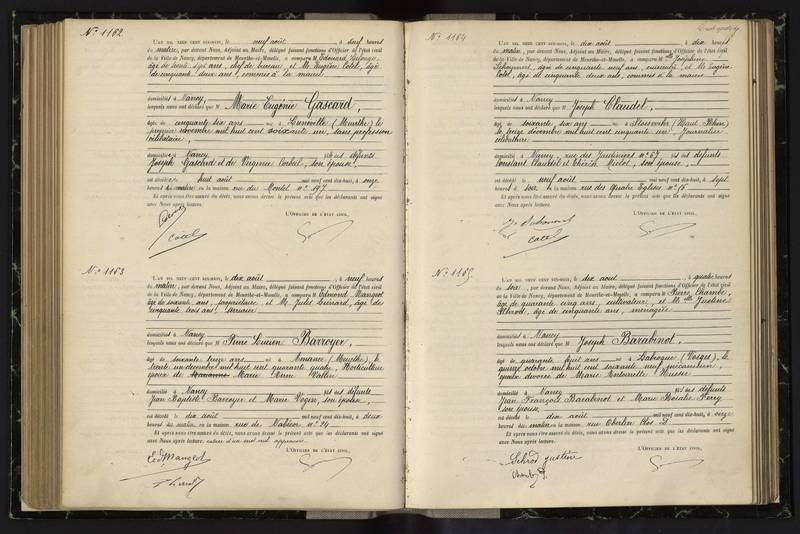 N° 1162
L'AN MIL NEUF CENT DIX-HUIT, le neuf août, à neuf heures
du matin, par devant Nous, Adjoint au Maire, délégué faisant fonctions d'Officier de l'état civil
de la Ville de Nancy, département de Meurthe-et-Moselle, a comparu M Edouard
âgé de sept ans, chef de bureau, et M. Eugène Cotel, âgé
de cinquante deux ans, commis à la mairie
domiciliés à Nancy,
lesquels nous ont déclaré que M Marie Eugénie Gascard,
âgée de cinquante six ans née à Lunéville (Meurthe) le
premier novembre mil huit cent soixante un, sans profession
célibataire,
domiciliée à Nancy fille des défunts
Joseph Gascard et de Virginie son épouse,
est décédée huit août mil neuf cent dix-huit, à onze
heures du matin en la maison rue du Montet n° 197
Et après nous être assuré du décès, nous avons dressé le présent acte que les déclarants ont signé
avec Nous après lecture.
L'OFFICIER DE L'ÉTAT CIVIL,
Cotel
N° 1163
L'AN MIL NEUF CENT DIX-HUIT, le dix août, à neuf heures
du matin, par devant Nous, Adjoint au Maire, délégué faisant fonctions d'Officier de l'état civil
de la Ville de Nancy, département de Meurthe-et-Moselle, a comparu M Edmond Mangeot
âgé de soixante ans, propriétaire et M. Jules âgé de
cinquante trois ans,
domiciliés à Nancy
lesquels nous ont déclaré que M Pierre Lucien Barroyer,
âgé de soixante treize ans né à Amance (Meurthe) le
trente un décembre mil huit cent quarante quatre Horticulteur
époux de Marie Anne Vallin
domicilié à Nancy fils des défunts
Jean Baptiste Barroyer et Marie son épouse,
est décédé le dix août mil neuf cent dix-huit, à deux
heures du matin, en la maison rue de n° 24
Et après nous être assuré du décès, nous avons dressé le présent acte que les déclarants ont signé
avec Nous après lecture, rature d'un mot nul approuvée
L'OFFICIER DE L'ÉTAT CIVIL,
Ed Mangeot
N° 1164
L'AN MIL NEUF CENT DIX-HUIT, le dix août, à dix heures
du matin, par devant Nous, Adjoint au Maire, délégué faisant fonctions d'Officier de l'état civil
de la Ville de Nancy, département de Meurthe-et-Moselle, a comparu M Joséphine
âgée de cinquante neuf ans, et M. Eugène
Cotel, âgé de cinquante deux ans, commis à la mairie
domiciliés à Nancy
lesquels nous ont déclaré que M Joseph Claudel,
âgé de soixante six ans né à (Haut Rhin)
le treize décembre mil huit cent cinquante un Journalier
célibataire
domicilié à Nancy, rue des n° 67 fils des défunts
Constant Claudel et son épouse,
est décédé le neuf août mil neuf cent dix-huit, à sept
heures du soir en la maison rue des Quatre Eglises n° 15
Et après nous être assuré du décès, nous avons dressé le présent acte que les déclarants ont signé
avec Nous après lecture.
L'OFFICIER DE L'ÉTAT CIVIL,
Cotel
N° 1165
L'AN MIL NEUF CENT DIX-HUIT, le dix août, à quatre heures
du soir, par devant Nous, Adjoint au Maire, délégué faisant fonctions d'Officier de l'état civil
de la Ville de Nancy, département de Meurthe-et-Moselle, a comparu M Pierre
âgé de quarante cinq ans, cultivateur, et M Justine
âgée de cinquante ans, ménagère
domiciliés à Nancy
lesquels nous ont déclaré que M Joseph Barabinot,
âgé de quarante huit ans né à (Vosges), le
quinze octobre mil huit cent soixante neuf mécanicien,
époux divorcé de Marie Antoinette
domicilié à Nancy fils des défunts
Jean François Barabinot et Marie Rosalie Ferry
son épouse
est décédé le dix août mil neuf cent dix-huit, à onze
heures du matin, en la maison rue Oberlin Clos D
Et après nous être assuré du décès, nous avons dressé le présent acte que les déclarants ont signé
avec Nous après lecture.
L'OFFICIER DE L'ÉTAT CIVIL,
justine